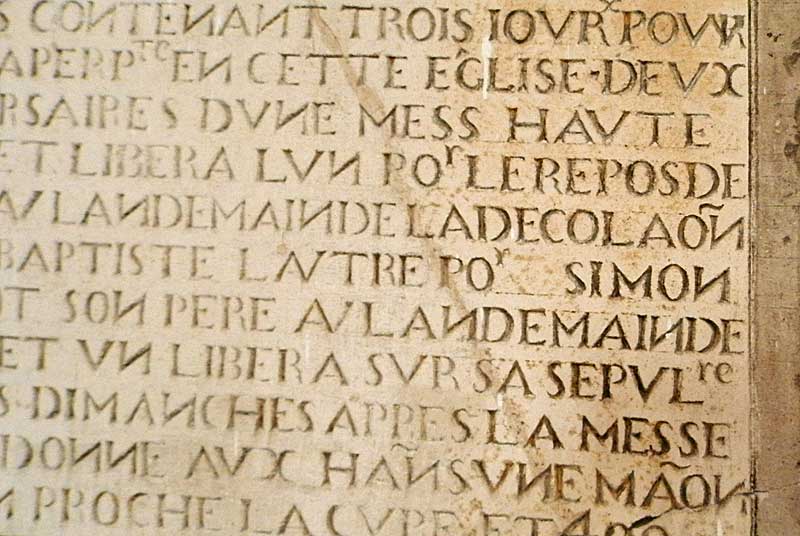 S CONTENANT TROIS IOVRˣ POVR
APERPᵗᶜ EN CETTE EGLISE·DEVX
RSAIRES DVNE MESS HAVTE
ET LIBERA LVN POʳ LE REPOS DE
AV LANDEMAIN DE LA DECOLAOÑ
BAPTISTE LAVTRE POʳ SIMON
OT SON PERE AV LANDEMAIN DE
ET VN LIBERA SVR SA SEPVLʳᵉ
S·DIMANCHES APPRES LA MESSE
DONNE AVX HAÑS VNE MAÕN
N PROCHE LA CVRE ET 400